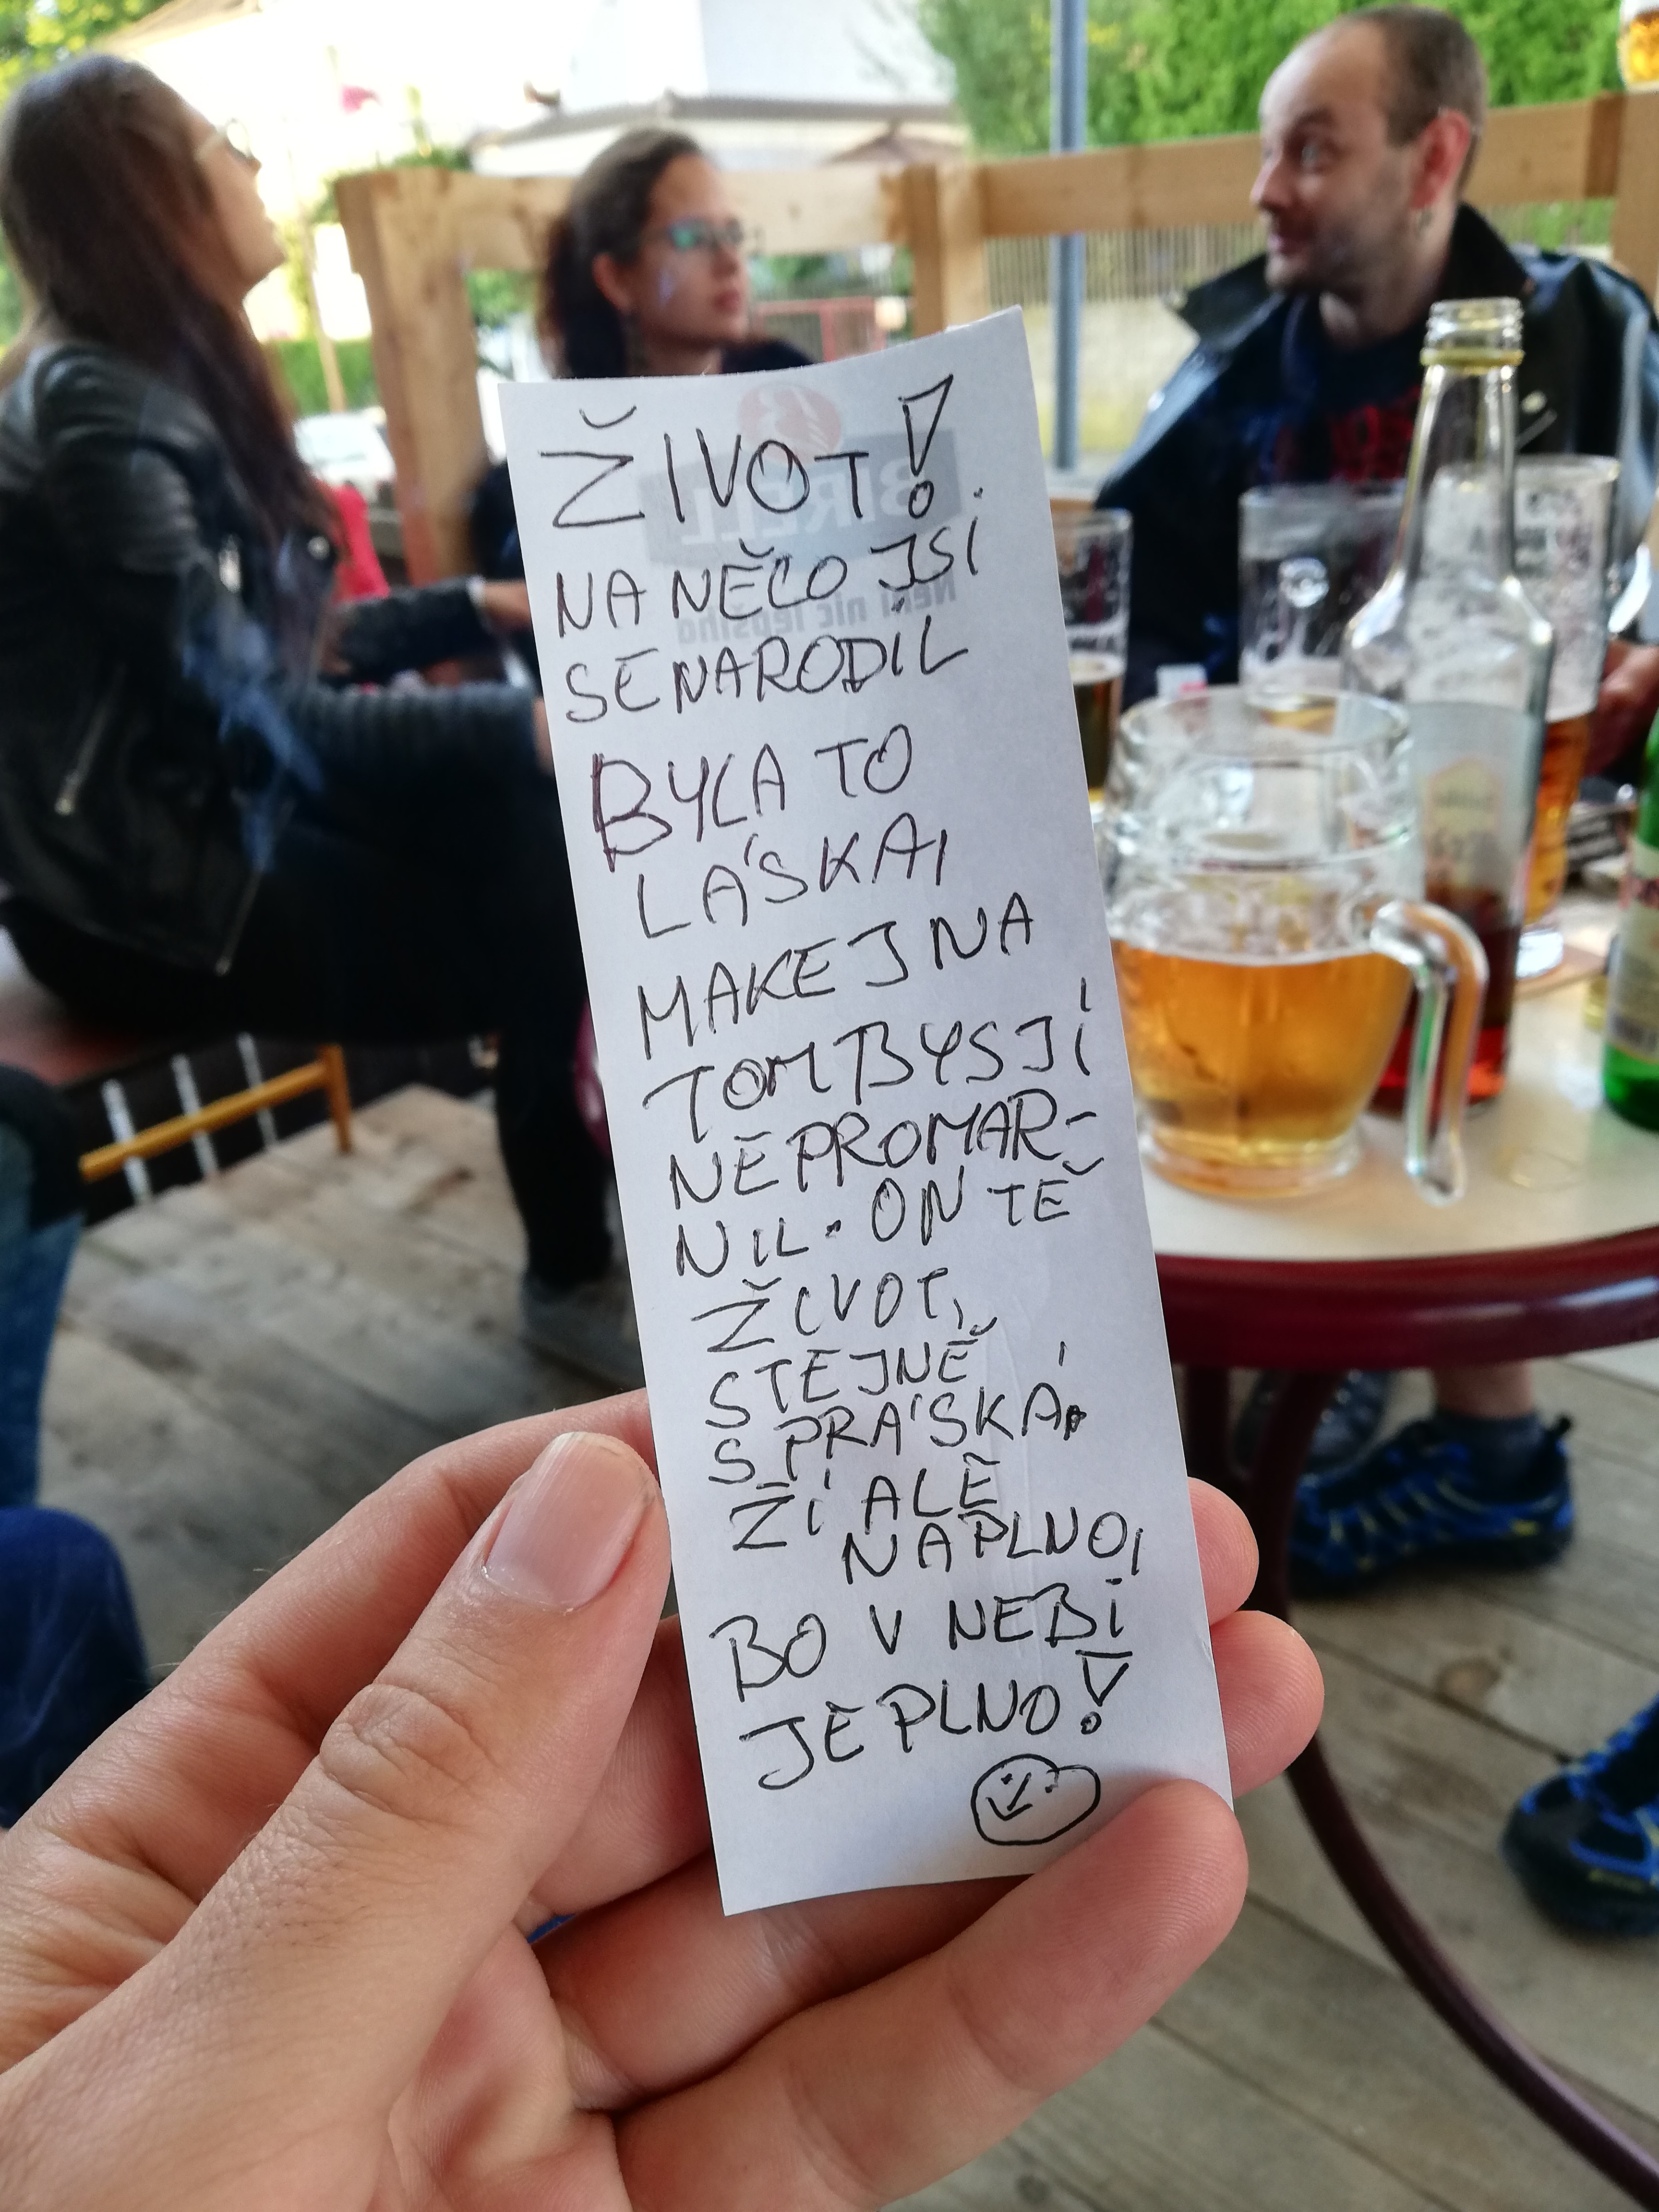 ŽIVOT!
NA NĚCO JSI
SE NARODIL
BYLA TO
LÁSKA,
MAKEJ NA
TOM BYS JÍ
NEPROMAR-
NIL. ON TĚ
ŽIVOT,
STEJNĚ
SPRÁSKÁ,
ŽÍ ALE
NAPLNO,
BO V NEBI
JE PLNO!
BIRELL
Není nic lepšího